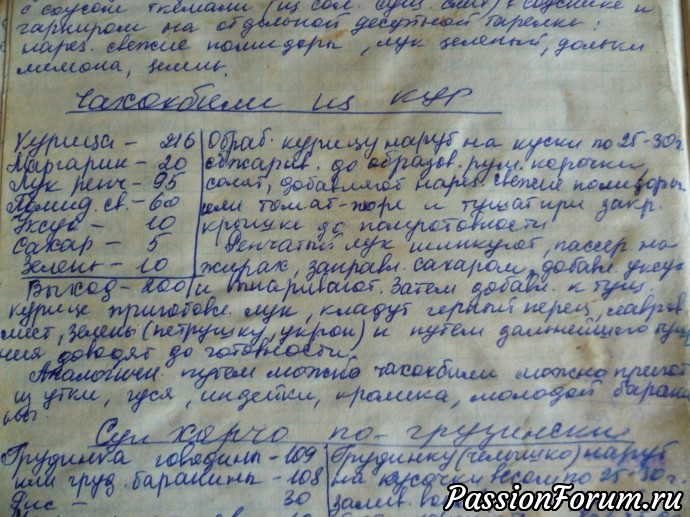 с соусом ткемали (из сол. суш. слив) в соуснике и
гарниром на отдельной десертной тарелке:
нарез. свежие помидоры, лук зеленый, дольки
лимона, зелень.
Чахохбили из кур
Курица - 216
Маргарин - 20
Лук репч - 95
Помид. св. - 60
Уксус - 10
Сахар - 5
Зелень - 10
Выход - 200
Обраб. курицу наруб на куски по 25-30г.
обжарив. до образов. рум. корочки
солят, добавляют нарез. свежие помидоры
или томат-пюре и тушат при закр.
крышке до полуготовности
Репчатый лук шинкуют, пассер на
жирах, заправл. сахаром, добавл. уксус
и выпаривают. Затем добавл. к туш.
курице приготовл. лук, кладут черный перец, лавров.
лист, зелень (петрушку, укроп) и путем дальнейшего туш
ния доводят до готовности.
Аналогичн. путем можно чахохбили можно пригот
из утки, гуся, индейки, кролика, молодой барани
ны.
Суп Харчо по-грузински
Грудинка говядины - 109
или груд. баранины - 108
Рис - 30
Грудинку (челышко) наруб
на кусочки весом по 25-30г.
залив.
PassionForum.ru